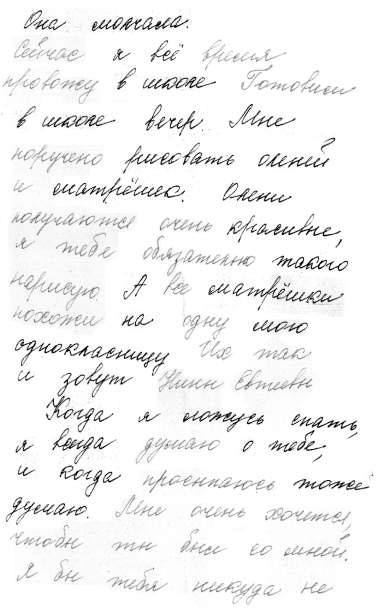 Она молчала.
Сейчас я всё время
провожу в школе Готовим
в школе вечер. Мне
поручено рисовать оленей
и матрёшек. Олени
получаются очень красивые,
я тебе обязательно такого
нарисую А все матрёшки
похожи на одну мою
однокласницу Их так
и зовут Нины Евтеевы
Когда я ложусь спать,
я всегда думаю о тебе,
и когда просыпаюсь тоже
думаю. Мне очень хочется,
чтобы ты был со мной.
Я бы тебя никуда не